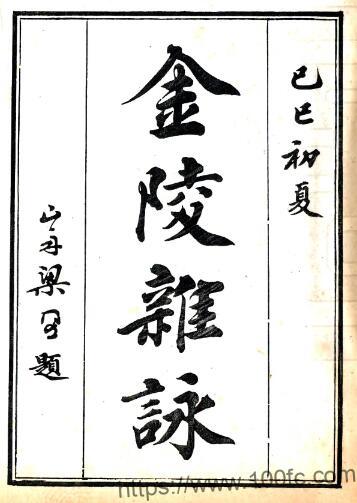 己巳初夏
金陵雜詠
梁題
https://www.100fc.com